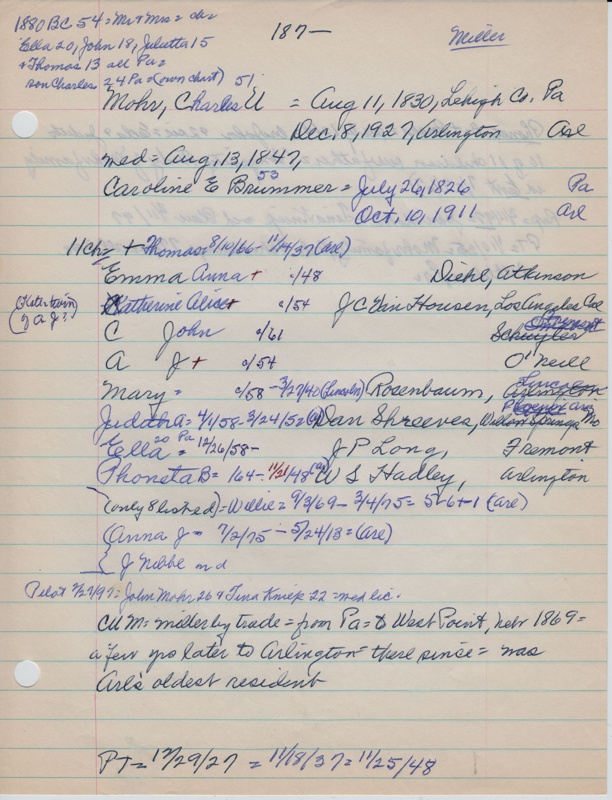 1880 BC 54 = Mr + Mrs = ch =
187-
Miller
Ella 20, John 18, Juletta 15
+ Thomas 13 all Pa =
son Charles 24 Pa = (own chart) 51
Mohr, Charles U = Aug 11, 1830, Lehigh Co, Pa
Dec. 8, 1927, Arlington
med = Aug, 13, 1847,
53
Caroline E Brummer = July 26, 1826 Pa
Oct. 10, 1911 Arl
11 ch = + Thomas = 8/10/66 - 11/14/37 (Arl)
Emma Anna + c/48 Diehl, Atkinson
Katherine Alice + c/54 J C Van Housen, Los Angeles
(Kater twin of A J?)
Fremont
C John c/61 Schuyler
A J + c/54 O'Neill
Lincoln
Mary = c/58 - 3/27/40 (Lincoln) Rosenbaum, Arlington
Judith A = 4/1/58 - 3/24/52 Dan Shreeves, Willow Springs Mo
20 Pa
Ella = 12/26/58 - J P Long, Fremont
Phoneta B = 164 - 11/21/48 W S Hadley, Arlington
(only 8 listed) = Willie = 9/3/69 - 3/4/75 = 5-6+1 (Arl)
(Anna J = 7/2/75 - 5/24/18 = (Arl)
{ J Nibbe md
Pilot 7/27/97 = John Mohr 26 + Tina Kniep 22 = med lic.
CUM = miller by trade = from Pa = to West Point, Nebr 1869 =
a few yrs later to Arlington = there since = was
Arl's oldest resident
PT = 12/29/27 = 11/18/37 = 11/25/48